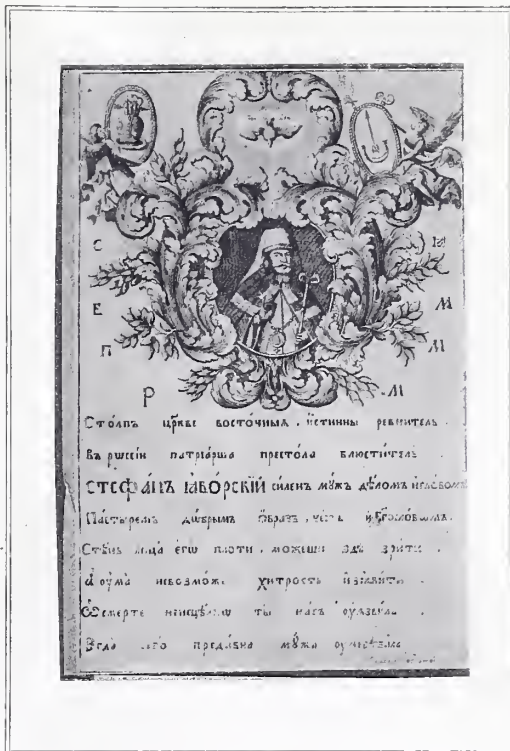 С М
Е М
П М
Р М
Столпъ црⷦ҇ве восточныѧ , истинны ревнитель .
въ рѡссіи патріарша престола блюститель
СТЕФА́НЪ ІА҆ВО́РСКЇЙ силенъ мꙋжъ дѣломъ и҆ словомъ
Пастыремъ до́брымъ ѻ҆́бразъ ,
Стѣнь лица̀ є҆гѡ̀ плоти , можеши здѣ зрѣти .
А҆ оума̀ невозмож. хитрость и҆з̾ѧвити .
Ѽ смерте неисцѣлно ты насъ оуѧзвила .
Єгда сего предивна мꙋ́жа